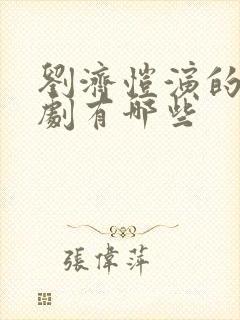 劉濟愷演的
劇有哪些
張偉萍